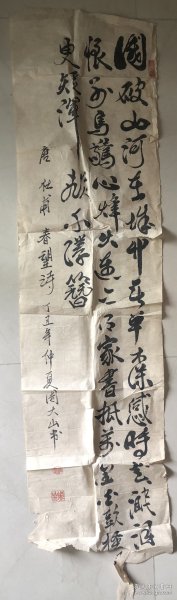 國破山河在城春草木深感時花濺淚
恨別鳥驚心烽火連三月家書抵萬金白頭搔
更短渾欲不勝簪
唐杜甫春望詩丁丑年仲夏周大山书